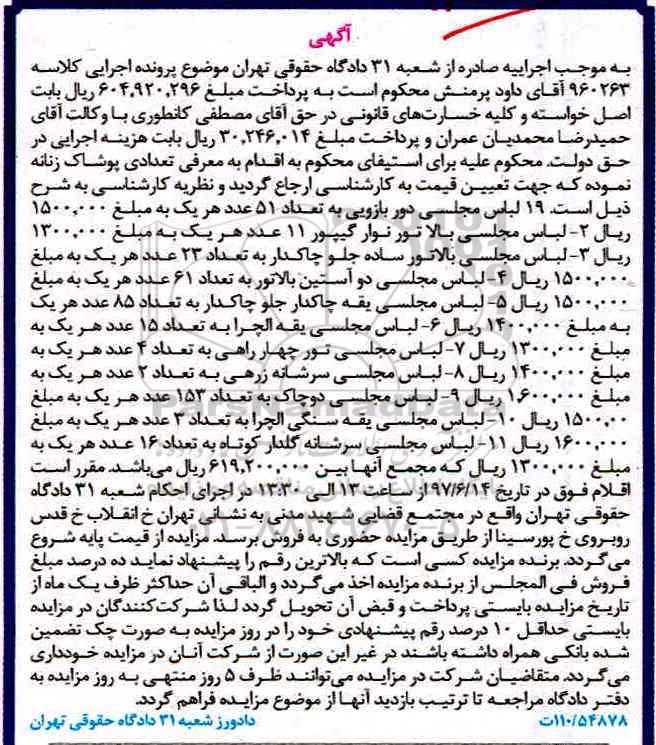 آگهی
به موجب اجراییه صادره از شعبه ۳۱ دادگاه حقوقی تهران موضوع پرونده اجرایی کلاسه
۹۶۰۲۶۳ آقای داود پرمنش محکوم است به پرداخت مبلغ ۶۰۴,۹۲۰,۲۹۶ ریال بابت
اصل خواسته و کلیه خسارت‌های قانونی در حق آقای مصطفی کانطوری با وکالت آقای
حمیدرضا محمدیان عمران و پرداخت مبلغ ۳۰,۲۴۶,۰۱۴ ریال بابت هزینه اجرایی در
حق دولت. محکوم علیه برای استیفای محکوم به اقدام به معرفی تعدادی پوشاک زنانه
نموده که جهت تعیین قیمت به کارشناسی ارجاع گردید و نظریه کارشناسی به شرح
ذیل است. ۱۹ لباس مجلسی دور بازویی به تعداد ۵۱ عدد هر یک به مبلغ ۱۵۰۰,۰۰۰
ریال ۲- لباس مجلسی بالا تور نوار گیپور ۱۱ عدد هر یک به مبلغ ۱۳۰۰,۰۰۰
ریال ۳- لباس مجلسی بالاتور ساده جلو چاکدار به تعداد ۲۳ عدد هر یک به مبلغ
۱۵۰۰,۰۰۰ ریال ۴- لباس مجلسی دو آستین بالاتور به تعداد ۶۱ عدد هر یک به مبلغ
۱۵۰۰,۰۰۰ ریال ۵- لباس مجلسی یقه چاکدار جلو چاکدار به تعداد ۸۵ عدد هر یک
به مبلغ ۱۴۰۰,۰۰۰ ریال ۶- لباس مجلسی یقه الچرا به تعداد ۱۵ عدد هر یک به
مبلغ ۱۳۰۰,۰۰۰ ریال ۷- لباس مجلسی تور چهار راهی به تعداد ۴ عدد هر یک به
مبلغ ۱۴۰۰,۰۰۰ ریال ۸- لباس مجلسی سرشانه زرهی به تعداد ۲ عدد هر یک به
مبلغ ۱,۶۰۰,۰۰۰ ریال ۹- لباس مجلسی دوچاک به تعداد ۱۵۳ عدد هر یک به مبلغ
۱۵۰۰,۰۰ ریال ۱۰- لباس مجلسی یقه سنگی الچرا به تعداد ۳ عدد هر یک به مبلغ
۱۶۰۰,۰۰۰ ریال ۱۱- لباس مجلسی سرشانه گلدار کوتاه به تعداد ۱۶ عدد هر یک به
مبلغ ۱۳۰۰,۰۰۰ ریال که مجمع آنها بین ۶۱۹,۲۰۰,۰۰۰ ریال می‌باشد. مقرر است
اقلام فوق در تاریخ ۹۷/۶/۱۴ از ساعت ۱۳ الی ۱۳:۳۰ در اجرای احکام شعبه ۳۱ دادگاه
حقوقی تهران واقع در مجتمع قضایی شهید مدنی به نشانی تهران خ انقلاب خ قدس
روبروی خ پورسینا از طریق مزایده حضوری به فروش برسد. مزایده از قیمت پایه شروع
می‌گردد. برنده مزایده کسی است که بالاترین رقم را پیشنهاد نماید ده درصد مبلغ
فروش فی المجلس از برنده مزایده اخذ می‌گردد و الباقی آن حداکثر ظرف یک ماه از
تاریخ مزایده بایستی پرداخت و قبض آن تحویل گردد لذا شرکت‌کنندگان در مزایده
بایستی حداقل ۱۰ درصد رقم پیشنهادی خود را در روز مزایده به صورت چک تضمین
شده بانکی همراه داشته باشند در غیر این صورت از شرکت آنان در مزایده خودداری
می‌گردد. متقاضیان شرکت در مزایده می‌توانند ظرف ۵ روز منتهی به روز مزایده به
دفتر دادگاه مراجعه تا ترتیب بازدید آنها از موضوع مزایده فراهم گردد.
۱۱۰/۵۴۸۷۸ت دادورز شعبه ۳۱ دادگاه حقوقی تهران
ParsNamadData
۰۲۱-۸۸۳۴۹۶۷۰-۵